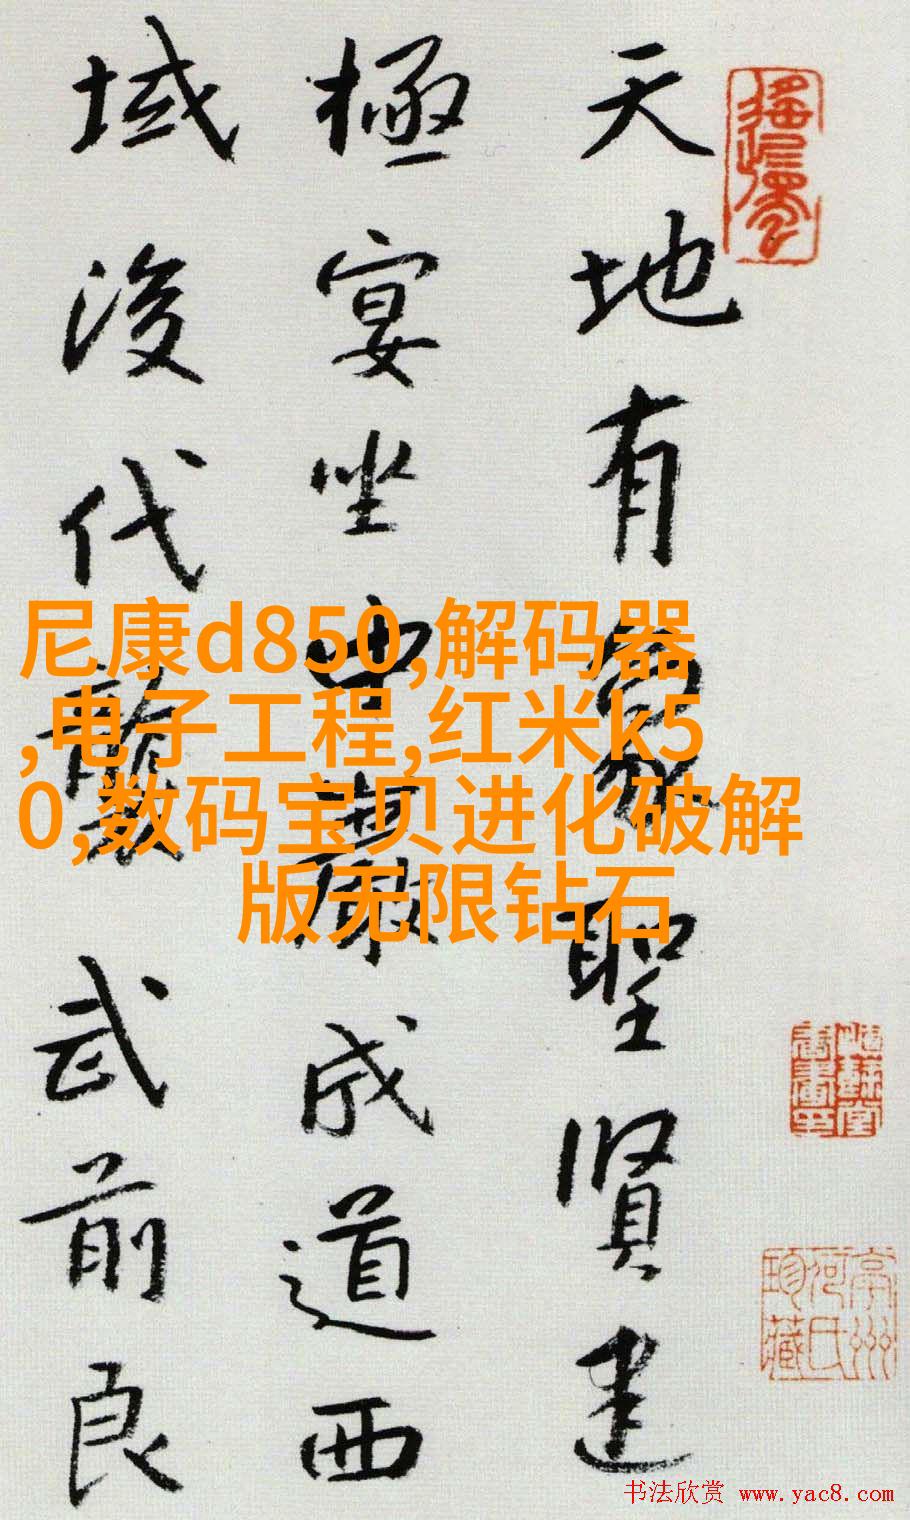 天地有象聖賢建
極宴坐中嚴成道西
域後代襲武前良
尼康d850,解码器
,电子工程,红米k5
0,数码宝贝进化破解
版无限钻石
亭州
河氏
珍藏
书法欣赏 www.yac8.com